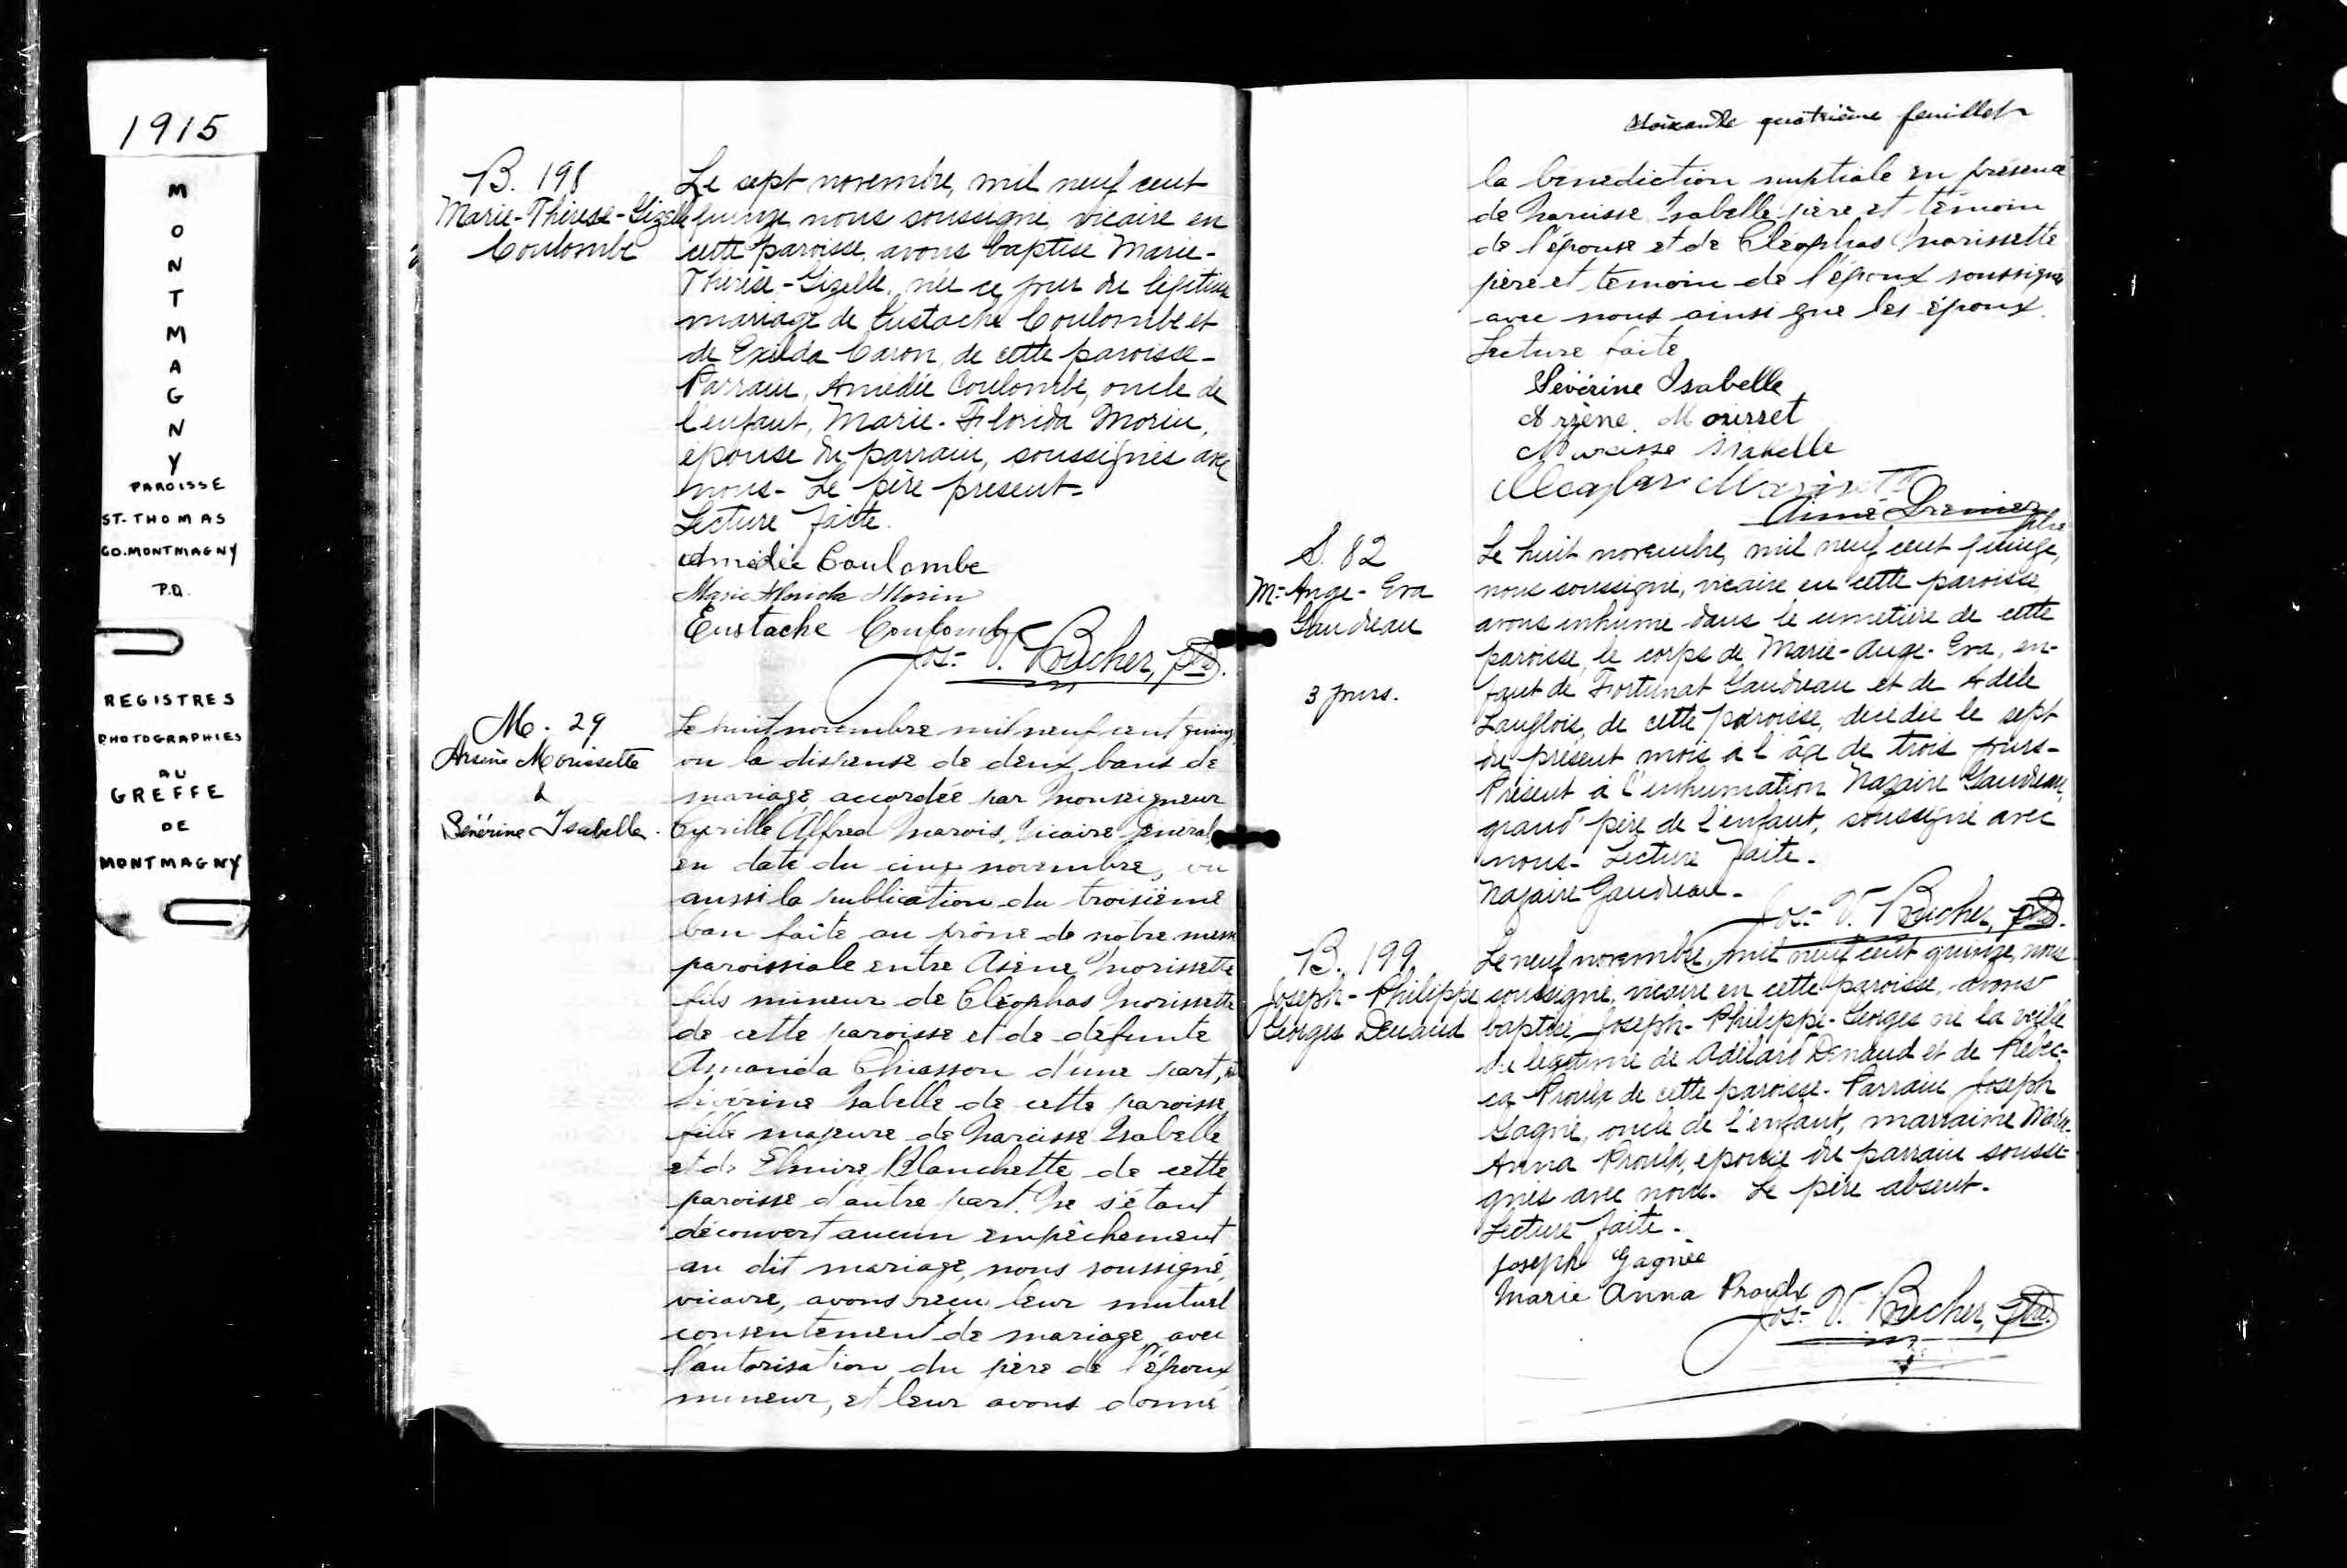 1915
MONTMAGNY
PAROISSE
ST-THOMAS
CO.MONTMAGNY
P.Q.
REGISTRES
PHOTOGRAPHIES
AU
GREFFE
DE
MONTMAGNY
B. 198
Marie-Thérèse-Gizelle
Coulombe
Le sept novembre, mil neuf cent
quinze, nous soussigné, vicaire en
cette paroisse, avons baptisé Marie-
Thérèse-Gizelle, née ce jour du légitime
mariage de Eustache Coulombe et
de Exilda Caron, de cette paroisse-
Parrain, Amédée Coulombe, oncle de
l'enfant, Marie-Florida Morin,
épouse du parrain, soussignés avec
nous- Le père présent-
Lecture faite.
Amédée Coulombe
Marie Florida Morin
Eustache Coulombe
Jos- V. Boucher, ptre.
M. 29
Arsène Morissette
&
Sévérine Isabelle.
Le huit novembre mil neuf cent quinze,
vu la dispense de deux bans de
mariage, accordée par Monseigneur
Cyrille Alfred Marois, Vicaire Général,
en date du cinq novembre, vu
aussi la publication du troisième
ban faite au prône de notre messe
paroissiale entre Asène Morissette
fils mineur de Cléophas Morissette
de cette paroisse et de défunte
Amanda Chiasson d'une part, et
Sévérine Isabelle de cette paroisse
fille majeure de Narcisse Isabelle
et de Elmire Blanchette de cette
paroisse d'autre part. Ne s'étant
découvert aucun empêchement
au dit mariage, nous soussigné,
vicaire, avons reçu leur mutuel
consentement de mariage, avec
l'autorisation du père de l'époux
mineur, et leur avons donné
soixante quatrième feuillet
la bénédiction nuptiale en présence
de Narcisse Isabelle père et témoin
de l'épouse et de Cléophas Morissette
père et témoin de l'époux soussignés
avec nous ainsi que les époux.
Lecture faite
Sévérine Isabelle
Arsène Morisset
Narcisse Isabelle
Cleophas Morisette
Aimé
ptre
S. 82
Mie Ange-Eva
Gaudreau
3 jours.
Le huit novembre, mil neuf cent quinze,
nous soussigné, vicaire en cette paroisse,
avons inhumé dans le cimetière de cette
paroisse, le corps de Marie-Ange-Eva, en-
fant de Fortunat Gaudreau et de Adèle
Langlois, de cette paroisse, décédée le sept
du présent mois à l'âge de trois jours-
Présent à l'inhumation Nazaire Gaudreau,
grand père de l'enfant, soussigné avec
nous- Lecture faite-
Nazaire Gaudreau-
Jos- V. Boucher, ptre.
B. 199
Joseph-Philippe
Georges Denaud
Le neuf novembre, mil neuf cent quinze, nous
soussigné, vicaire en cette paroisse, avons
baptisé Joseph-Philippe-Georges né la veille
du légitime de Adélard Denaud et de Rébec-
ca Proulx de cette paroisse- Parrain Joseph
Gagné, oncle de l'enfant, marraine Marie
Anna Proulx, épouse du parrain soussi-
gnés avec nous. Le père absent-
Lecture faite-
Joseph Gagnée
Marie Anna Proulx
Jos- V. Boucher, ptre.